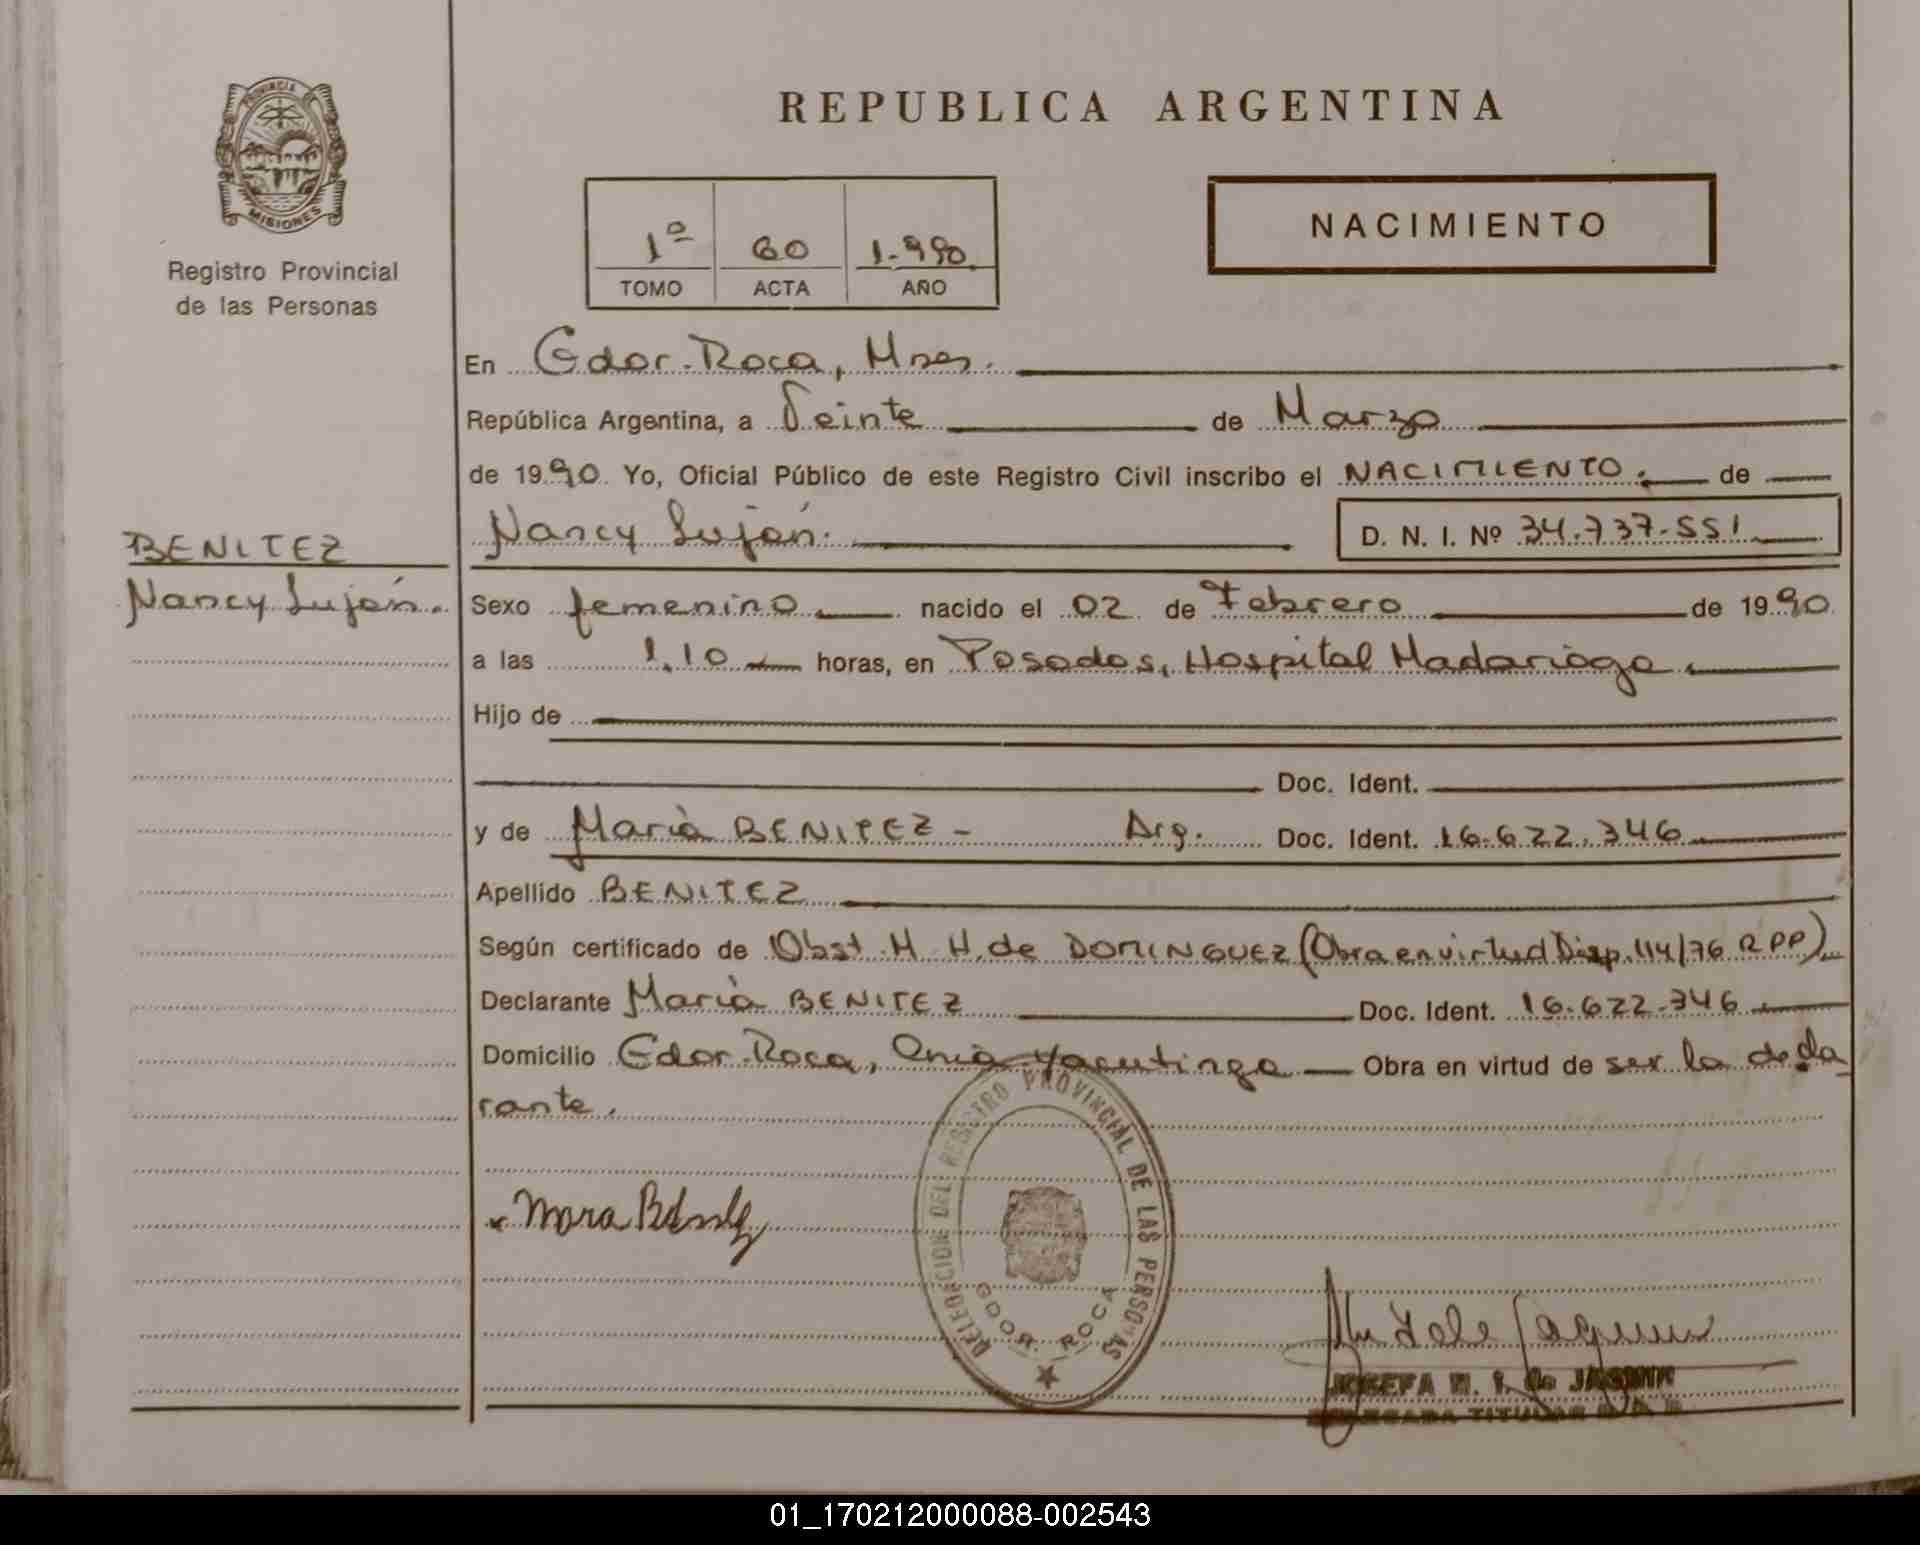 PROVINCIA DE
MISIONES
Registro Provincial
de las Personas
REPUBLICA ARGENTINA
1º 60 1.990
TOMO ACTA AÑO
NACIMIENTO
En Gdor. Roca, Mnes.
República Argentina, a Veinte de Marzo
de 1990 Yo, Oficial Público de este Registro Civil inscribo el NACIMIENTO. de
BENITEZ
Nancy Luján.
Nancy Luján. D. N. I. Nº 34.737.551
Sexo femenino nacido el 02 de Febrero de 1990
a las 1,10 horas, en Posadas, Hospital Madariaga
Hijo de
Doc. Ident.
y de María BENITEZ - Arg. Doc. Ident. 16.622.346
Apellido BENITEZ
Según certificado de Obst. M. H. de DOMINGUEZ (Obra en virtud Disp. 114/76 RPP)
Declarante María BENITEZ Doc. Ident. 16.622.346
Domicilio Gdor. Roca, Cnia Yacutinga Obra en virtud de ser la decla
rante.
DELEGACION DEL REGISTRO PROVINCIAL DE LAS PERSONAS
GDOR. ROCA
JOSEFA de JASMIN
DELEGADA TITULAR
01_170212000088-002543